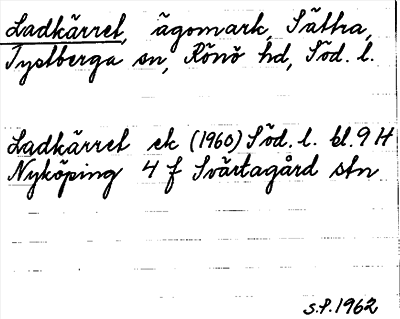 Ladkärret, ägomark, Sättra,
Tystberga sn, Rönö hd, Söd. l.
Ladkärret ek (1960) Söd. l. bl. 9 H
Nyköping 4 f Svärtagård stn
S.P. 1962